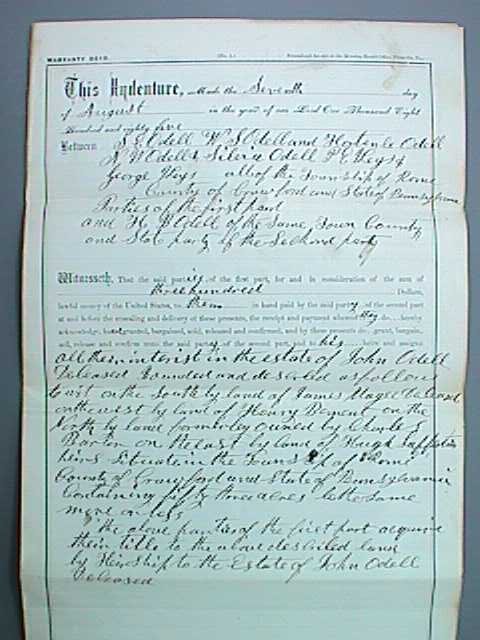 WARRANTY DEED.
This Indenture, Made the Seventh day
of August in the year of our Lord One Thousand Eight
Hundred and eighty five
Between S E Odell W S Odell and Hortense Odell
N W Odell & Silvia Odell
George all of the Township of Rome
County of Crawford and State of Pennsylvania
Parties of the first part
and H P Odell of the Same Town County
and State party of the Second part
Witnesseth, That the said parties of the first part, for and in consideration of the sum of
three hundred Dollars,
lawful money of the United States, to them in hand paid by the said party of the second part
at and before the ensealing and delivery of these presents, the receipt and payment whereof they do hereby
acknowledge, have granted, bargained, sold, released and confirmed, and by these presents do grant, bargain,
sell, release and confirm unto the said party of the second part, and to his heirs and assigns
all their interist in the estate of John Odell
Deceased Bounded and described as follows
to wit on the South by land of James Magee Deceased
on the west by land of Henry Dement on the
North by land formerly owned by Charles S
Barton on the east by land of Hugh
heirs Situate in the Township of Rome
County of Crawford and State of Pennsylvania
Containing fifty three acres be the same
more or less
the above parties of the first part acquired
their title to the above described land
by Heirship to the Estate of John Odell
Deceased